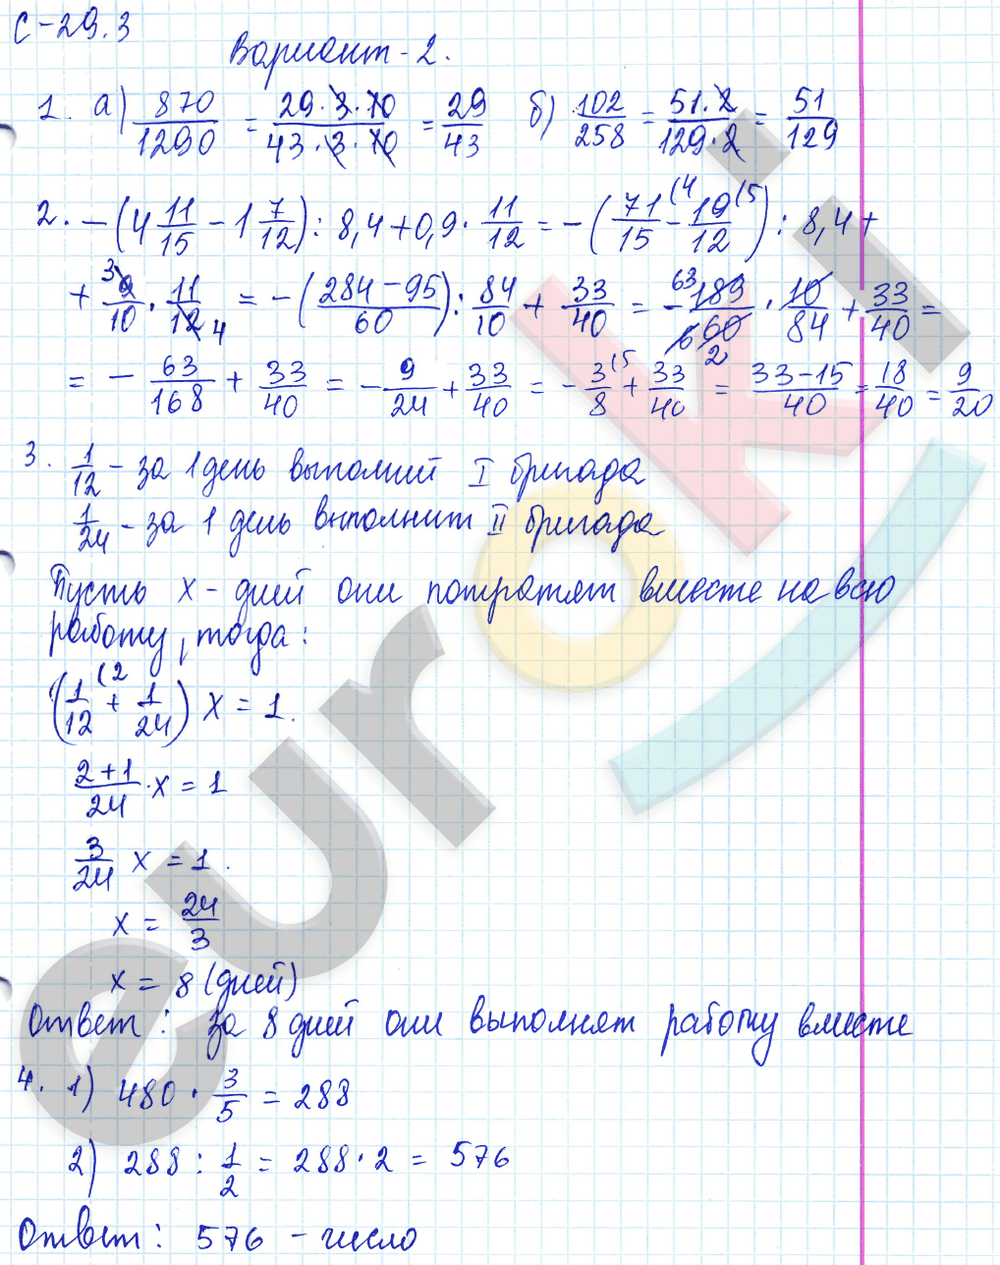 С-29.3
Вариант-2.
1. а) 870/1290 = 29·3·10/43·3·10 = 29/43 б) 102/258 = 51·2/129·2 = 51/129
2. -(4 11/15 - 1 7/12) : 8,4 + 0,9 · 11/12 = -(71/15 (4 - 19/12 (5) : 8,4 +
+ 3 9/10 · 11/12 4 = -(284-95/60) : 84/10 + 33/40 = - 63 189/6 60 2 · 10/84 + 33/40 =
= - 63/168 + 33/40 = - 9/24 + 33/40 = - 3/8 (5 + 33/40 = 33-15/40 = 18/40 = 9/20
3. 1/12 - за 1 день выполнит I бригада
1/24 - за 1 день выполнит II бригада
Пусть x - дней они потратят вместе на всю
работу, тогда:
(1/12 (2 + 1/24) x = 1.
2+1/24 · x = 1
3/24 x = 1.
x = 24/3
x = 8 (дней)
Ответ: за 8 дней они выполнят работу вместе
4. 1) 480 · 3/5 = 288
2) 288 : 1/2 = 288·2 = 576
Ответ: 576 - число
euroki